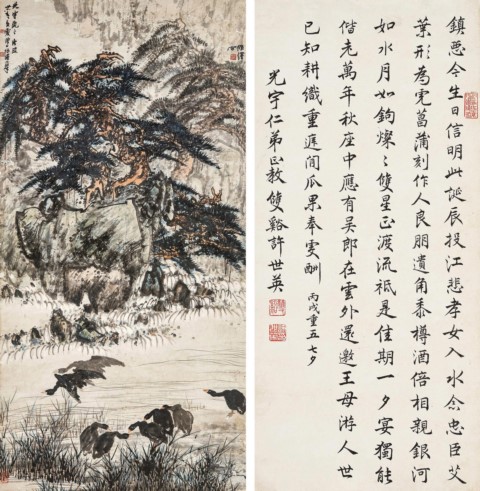 鎮惡今生日信明此誕辰投江悲孝女入水念忠臣艾
葉形為虎菖蒲刻作人良朋遺角黍樽酒倍相親銀河
如水月如鉤燦〻雙星正渡流祗是佳期一夕宴獨能
偕老萬年秋座中應有吳郎在雲外還邀王母游人世
已知耕織重閒瓜果奉酬 丙戌重五七夕
光宇仁弟正教雙谿許世英